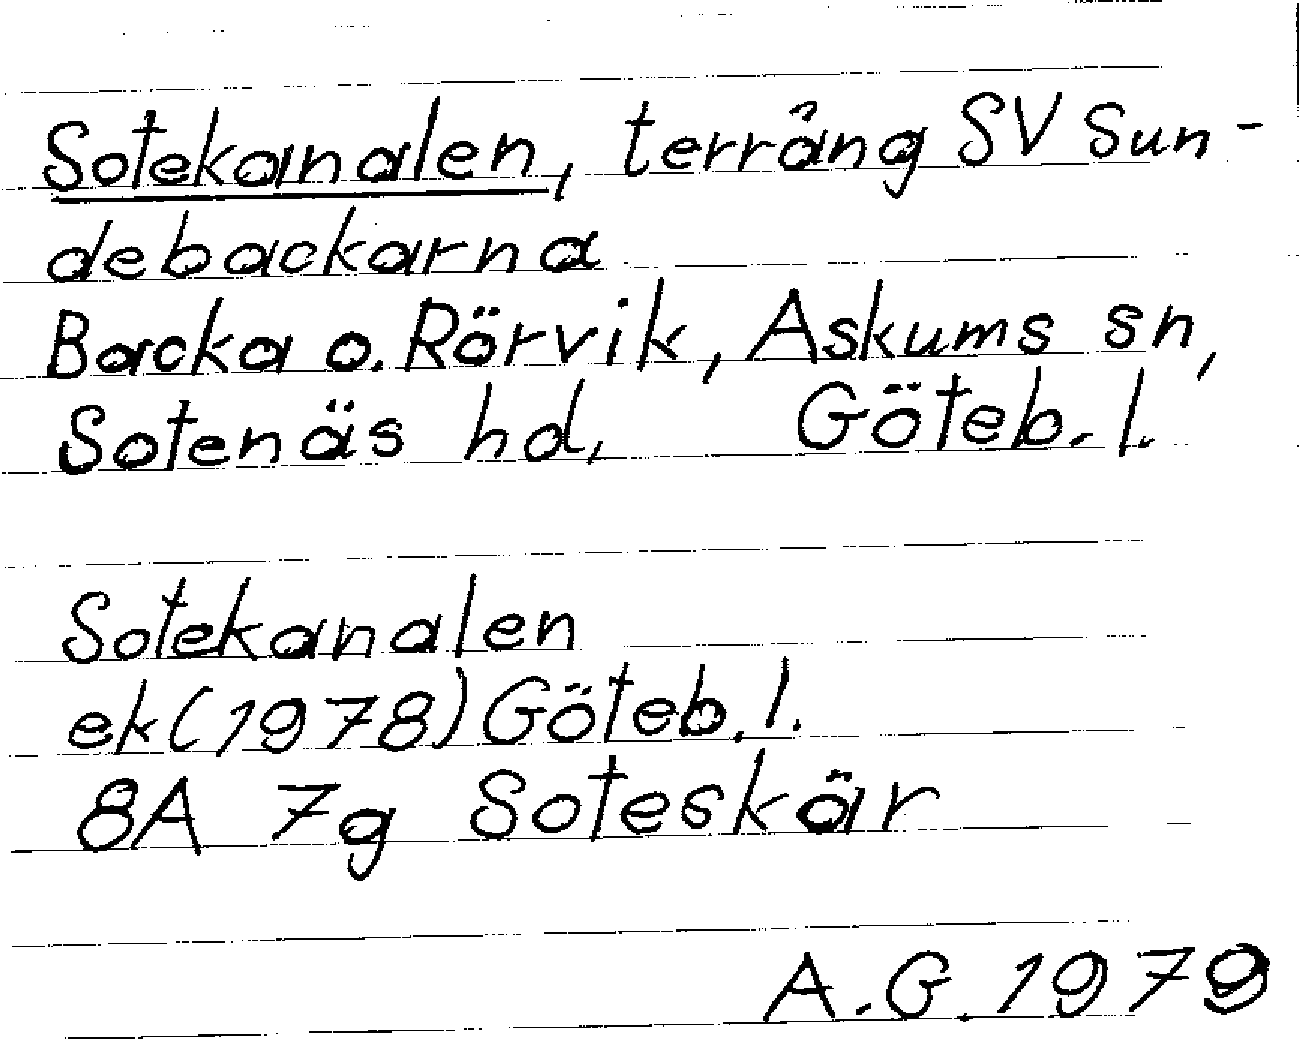 Sotekanalen, terräng SV Sun-
debackarna
Backa o. Rörvik, Askums sn,
Sotenäs hd, Göteb. l.
Sotekanalen
ek (1978) Göteb. l.
8A 7g Soteskär
A.G. 1979